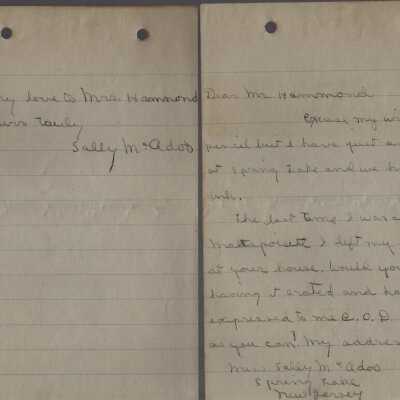 my love to Mrs. Hammond
yours truly
Sally McAdoo
Dear Mr. Hammond
Excuse my wri
pencil but I have just a
at Spring Lake and we h
ink.
The last time I was a
Mattapoisett I left my
at your house. Would you
having it crated and ha
expressed to me C. O. D.
as you can? My address
Miss Sally McAdoo
Spring Lake
New Jersey